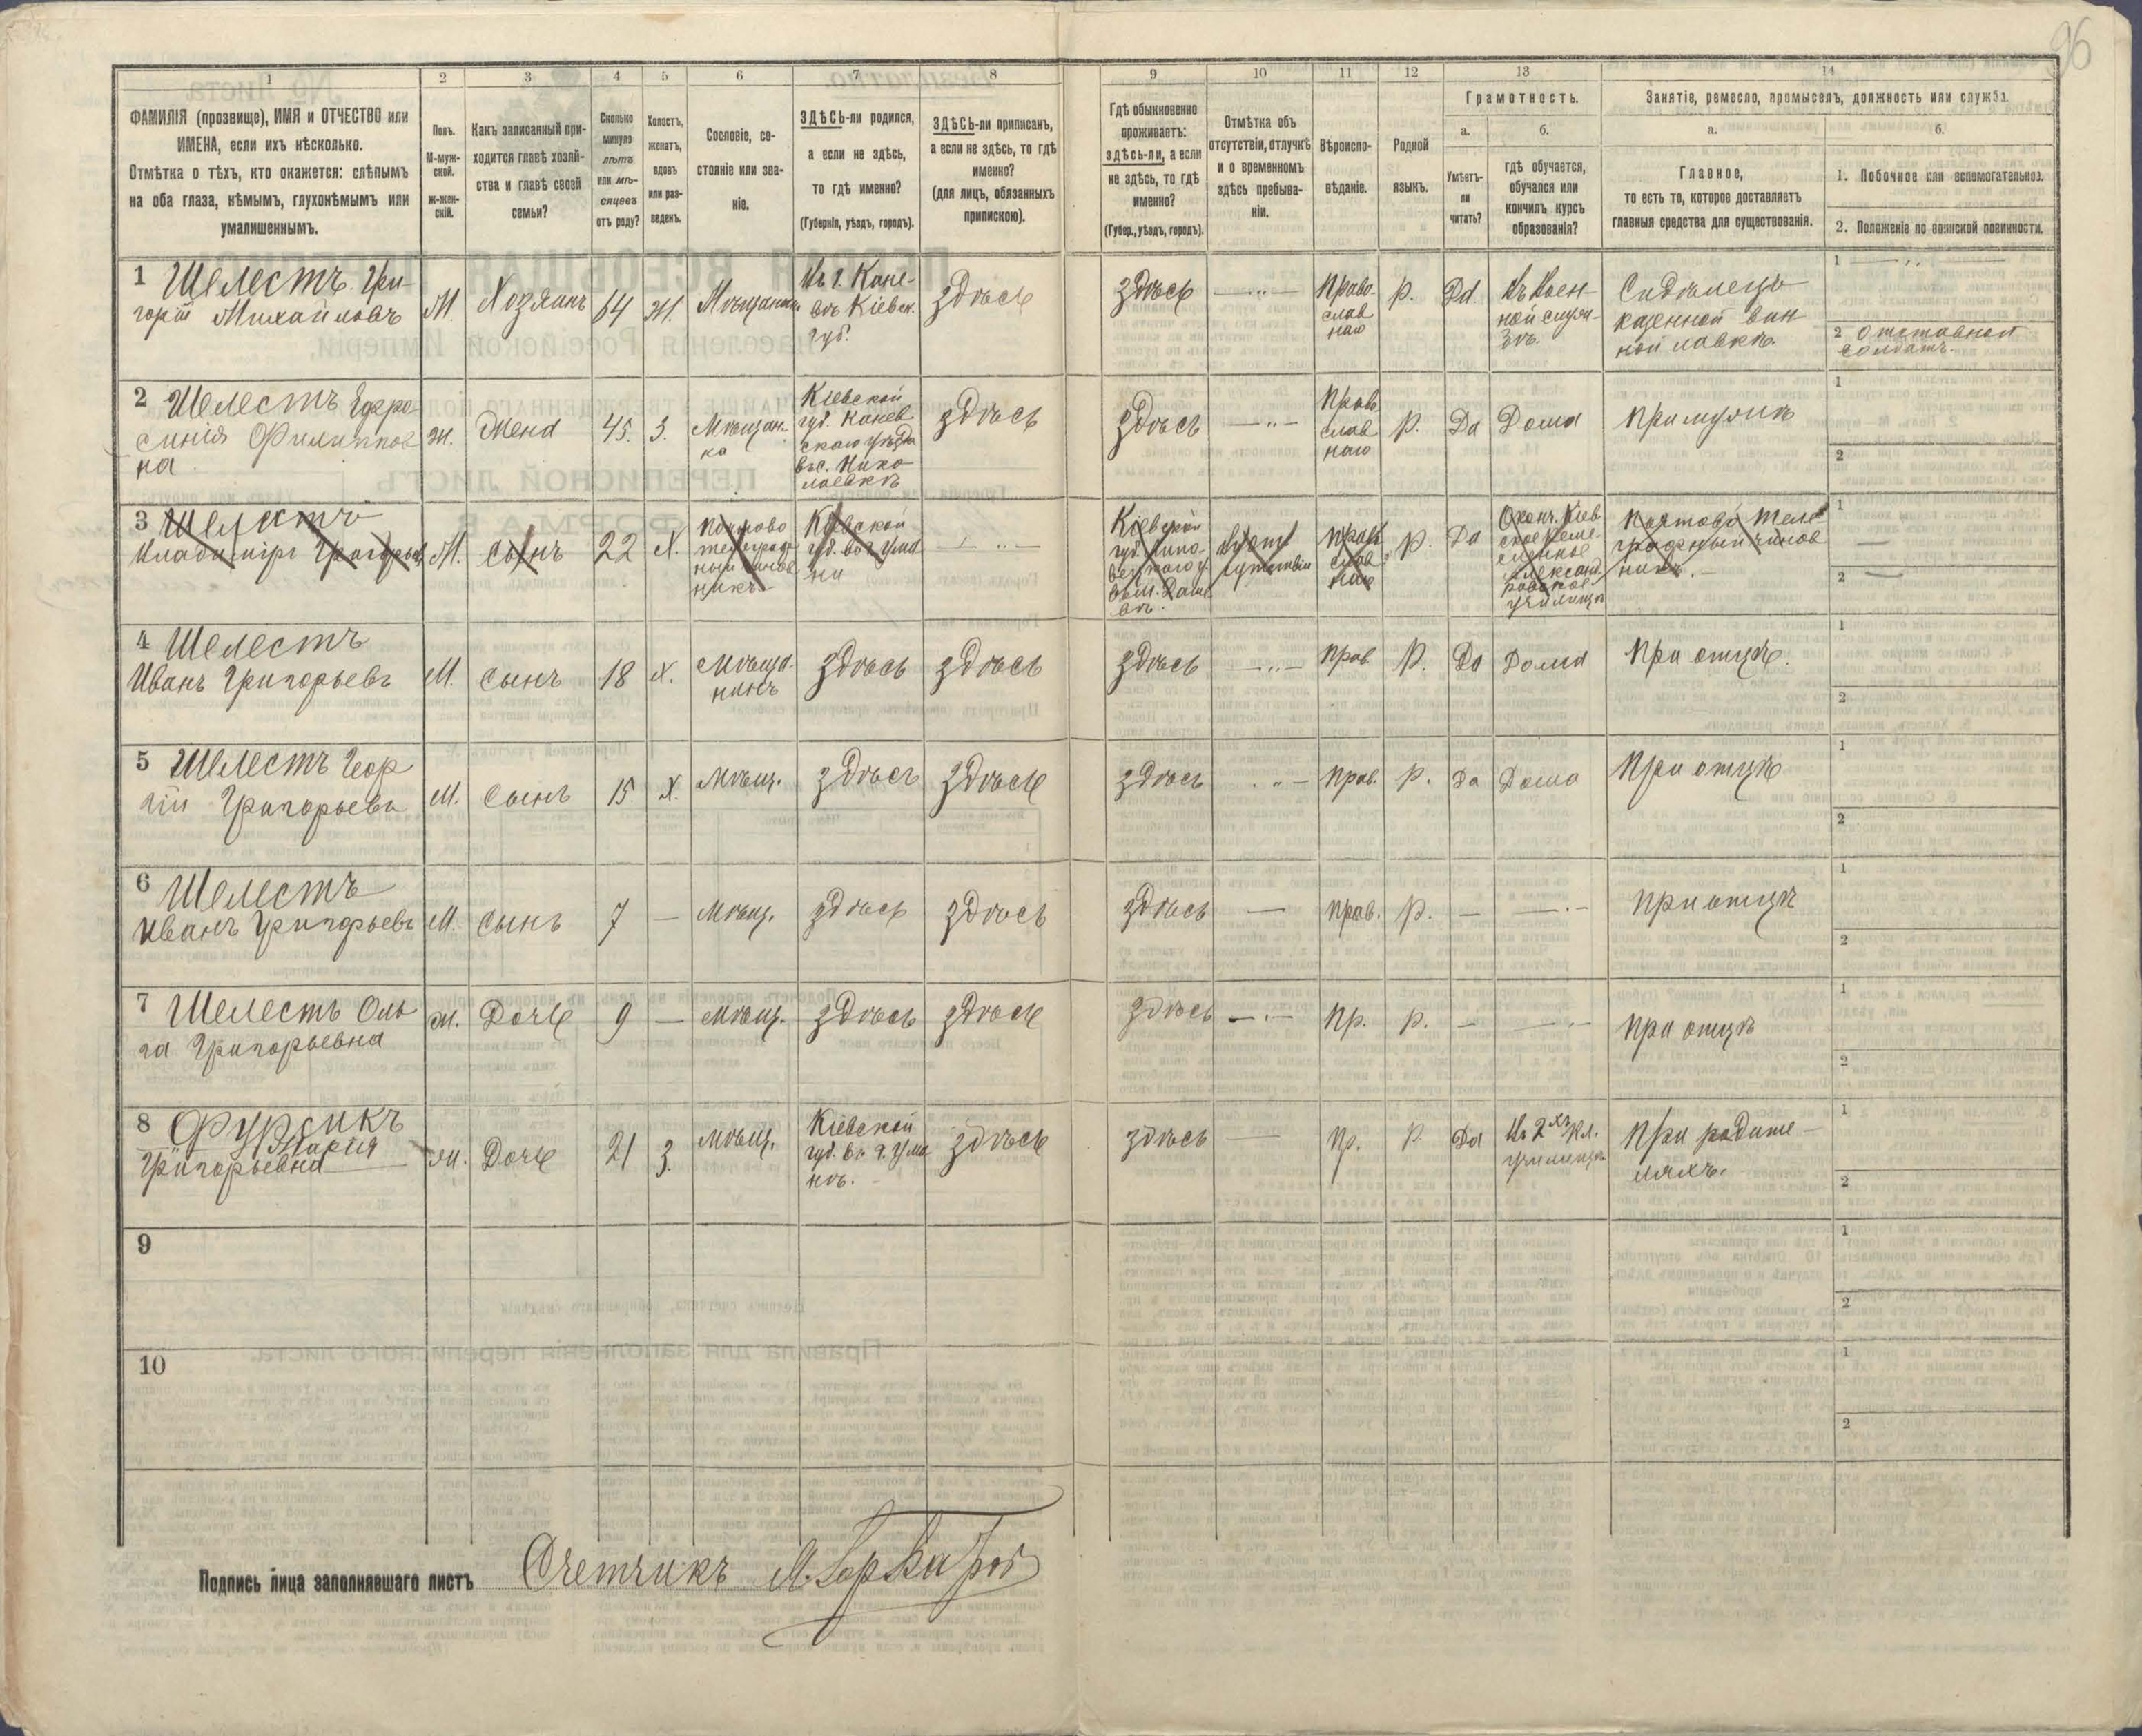 96
1 2 3 4 5 6 7 8 9 10 11 12 13 14
ФАМИЛІЯ (прозвище), ИМЯ и ОТЧЕСТВО или
ИМЕНА, если ихъ нѣсколько.
Отмѣтка о тѣхъ, кто окажется: слѣпымъ
на оба глаза, нѣмымъ, глухонѣмымъ или
умалишеннымъ.
Полъ.
М-муж-
ской.
Ж-жен-
скій.
Какъ записанный при-
ходится главѣ хозяй-
ства и главѣ своей
семьи?
Сколько
минуло
лѣтъ
или мѣ-
сяцевъ
отъ роду?
Холостъ,
женатъ,
вдовъ
или раз-
веденъ.
Сословіе, со-
стояніе или зва-
ніе.
ЗДѢСЬ-ли родился,
а если не здѣсь,
то гдѣ именно?
(Губернія, уѣздъ, городъ).
ЗДѢСЬ-ли приписанъ,
а если не здѣсь, то гдѣ
именно?
(для лицъ, обязанныхъ
припискою).
Гдѣ обыкновенно
проживаетъ:
здѣсь-ли, а если
не здѣсь, то гдѣ
именно?
(Губер., уѣздъ, городъ).
Отмѣтка объ
отсутствіи, отлучкѣ
и о временномъ
здѣсь пребыва-
ніи.
Вѣроиспо-
вѣданіе.
Родной
языкъ.
Грамотность.
а.
Умѣетъ-
ли
читать?
б.
гдѣ обучается,
обучался или
кончилъ курсъ
образованія?
Занятіе, ремесло, промыселъ, должность или служба.
а.
Главное,
то есть то, которое доставляетъ
главныя средства для существованія.
б.
1. Побочное или вспомогательное.
2. Положеніе по воинской повинности.
1 Шелестъ Гри-
горій Михайловъ
М.
Хозяинъ
64
Ж.
Мѣщанинъ
Въ г. Кане-
вѣ Кіевск.
губ.
здѣсь
здѣсь
Право-
слав
наго
Р.
Да
Въ Воен-
ной служ-
бѣ.
Сидѣлецъ
казенной вин
ной лавки.
1
2 Отставной
солдатъ.
2 Шелестъ Ефро
синія Филиппов
на
Ж.
Жена
45
З.
Мѣщан-
ка
Кіевской
губ. Канев
скаго уѣзда
въ с. Нико
лаевкѣ
здѣсь
здѣсь
Прав
слав
наго
Р.
Да
Дома
При мужѣ
1
2
3 Шелестъ
Владиміръ Григорьевъ
М.
Сынъ
22
Х.
Почтово
телеграф
ный чинов
никъ
Кіевской
губ. въ г. Ума
ни
Кіевской
губ. Липо-
вецкаго у.
въ м. Даше
вѣ.
Прав
слав
наго
Р.
Да
Оконч. Кіев
ское Реме-
сленное
Александ
ровское
училище
Почтово Теле
графный чинов
никъ.
1
2
4 Шелестъ
Иванъ Григорьевъ
М.
Сынъ
18
Х.
Мѣща-
нинъ
здѣсь
здѣсь
здѣсь
Прав
Р.
Да
Дома
При отцѣ.
1
2
5 Шелестъ Геор
гій Григорьевъ
М.
Сынъ
15
Х.
Мѣщ.
здѣсь
здѣсь
здѣсь
Прав.
Р.
Да
Дома
При отцѣ
1
2
6 Шелестъ
Иванъ Григорьевъ
М.
Сынъ
7
Мѣщ.
здѣсь
здѣсь
здѣсь
Прав.
Р.
При отцѣ
1
2
7 Шелестъ Оль
га Григорьевна
Ж.
Дочь
9
Мѣщ.
здѣсь
здѣсь
здѣсь
Пр.
Р.
При отцѣ
1
2
8 Фурсикъ
Марія
Григорьевна
Ж.
Дочь
21
З.
Мѣщ.
Кіевской
губ. въ г. Ума
нѣ.
здѣсь
здѣсь
Пр.
Р.
Да
Въ 2хъ кл.
училищѣ
При родите-
ляхъ.
1
2
9
1
2
10
1
2
Подпись лица заполнявшаго листъ Счетчикъ